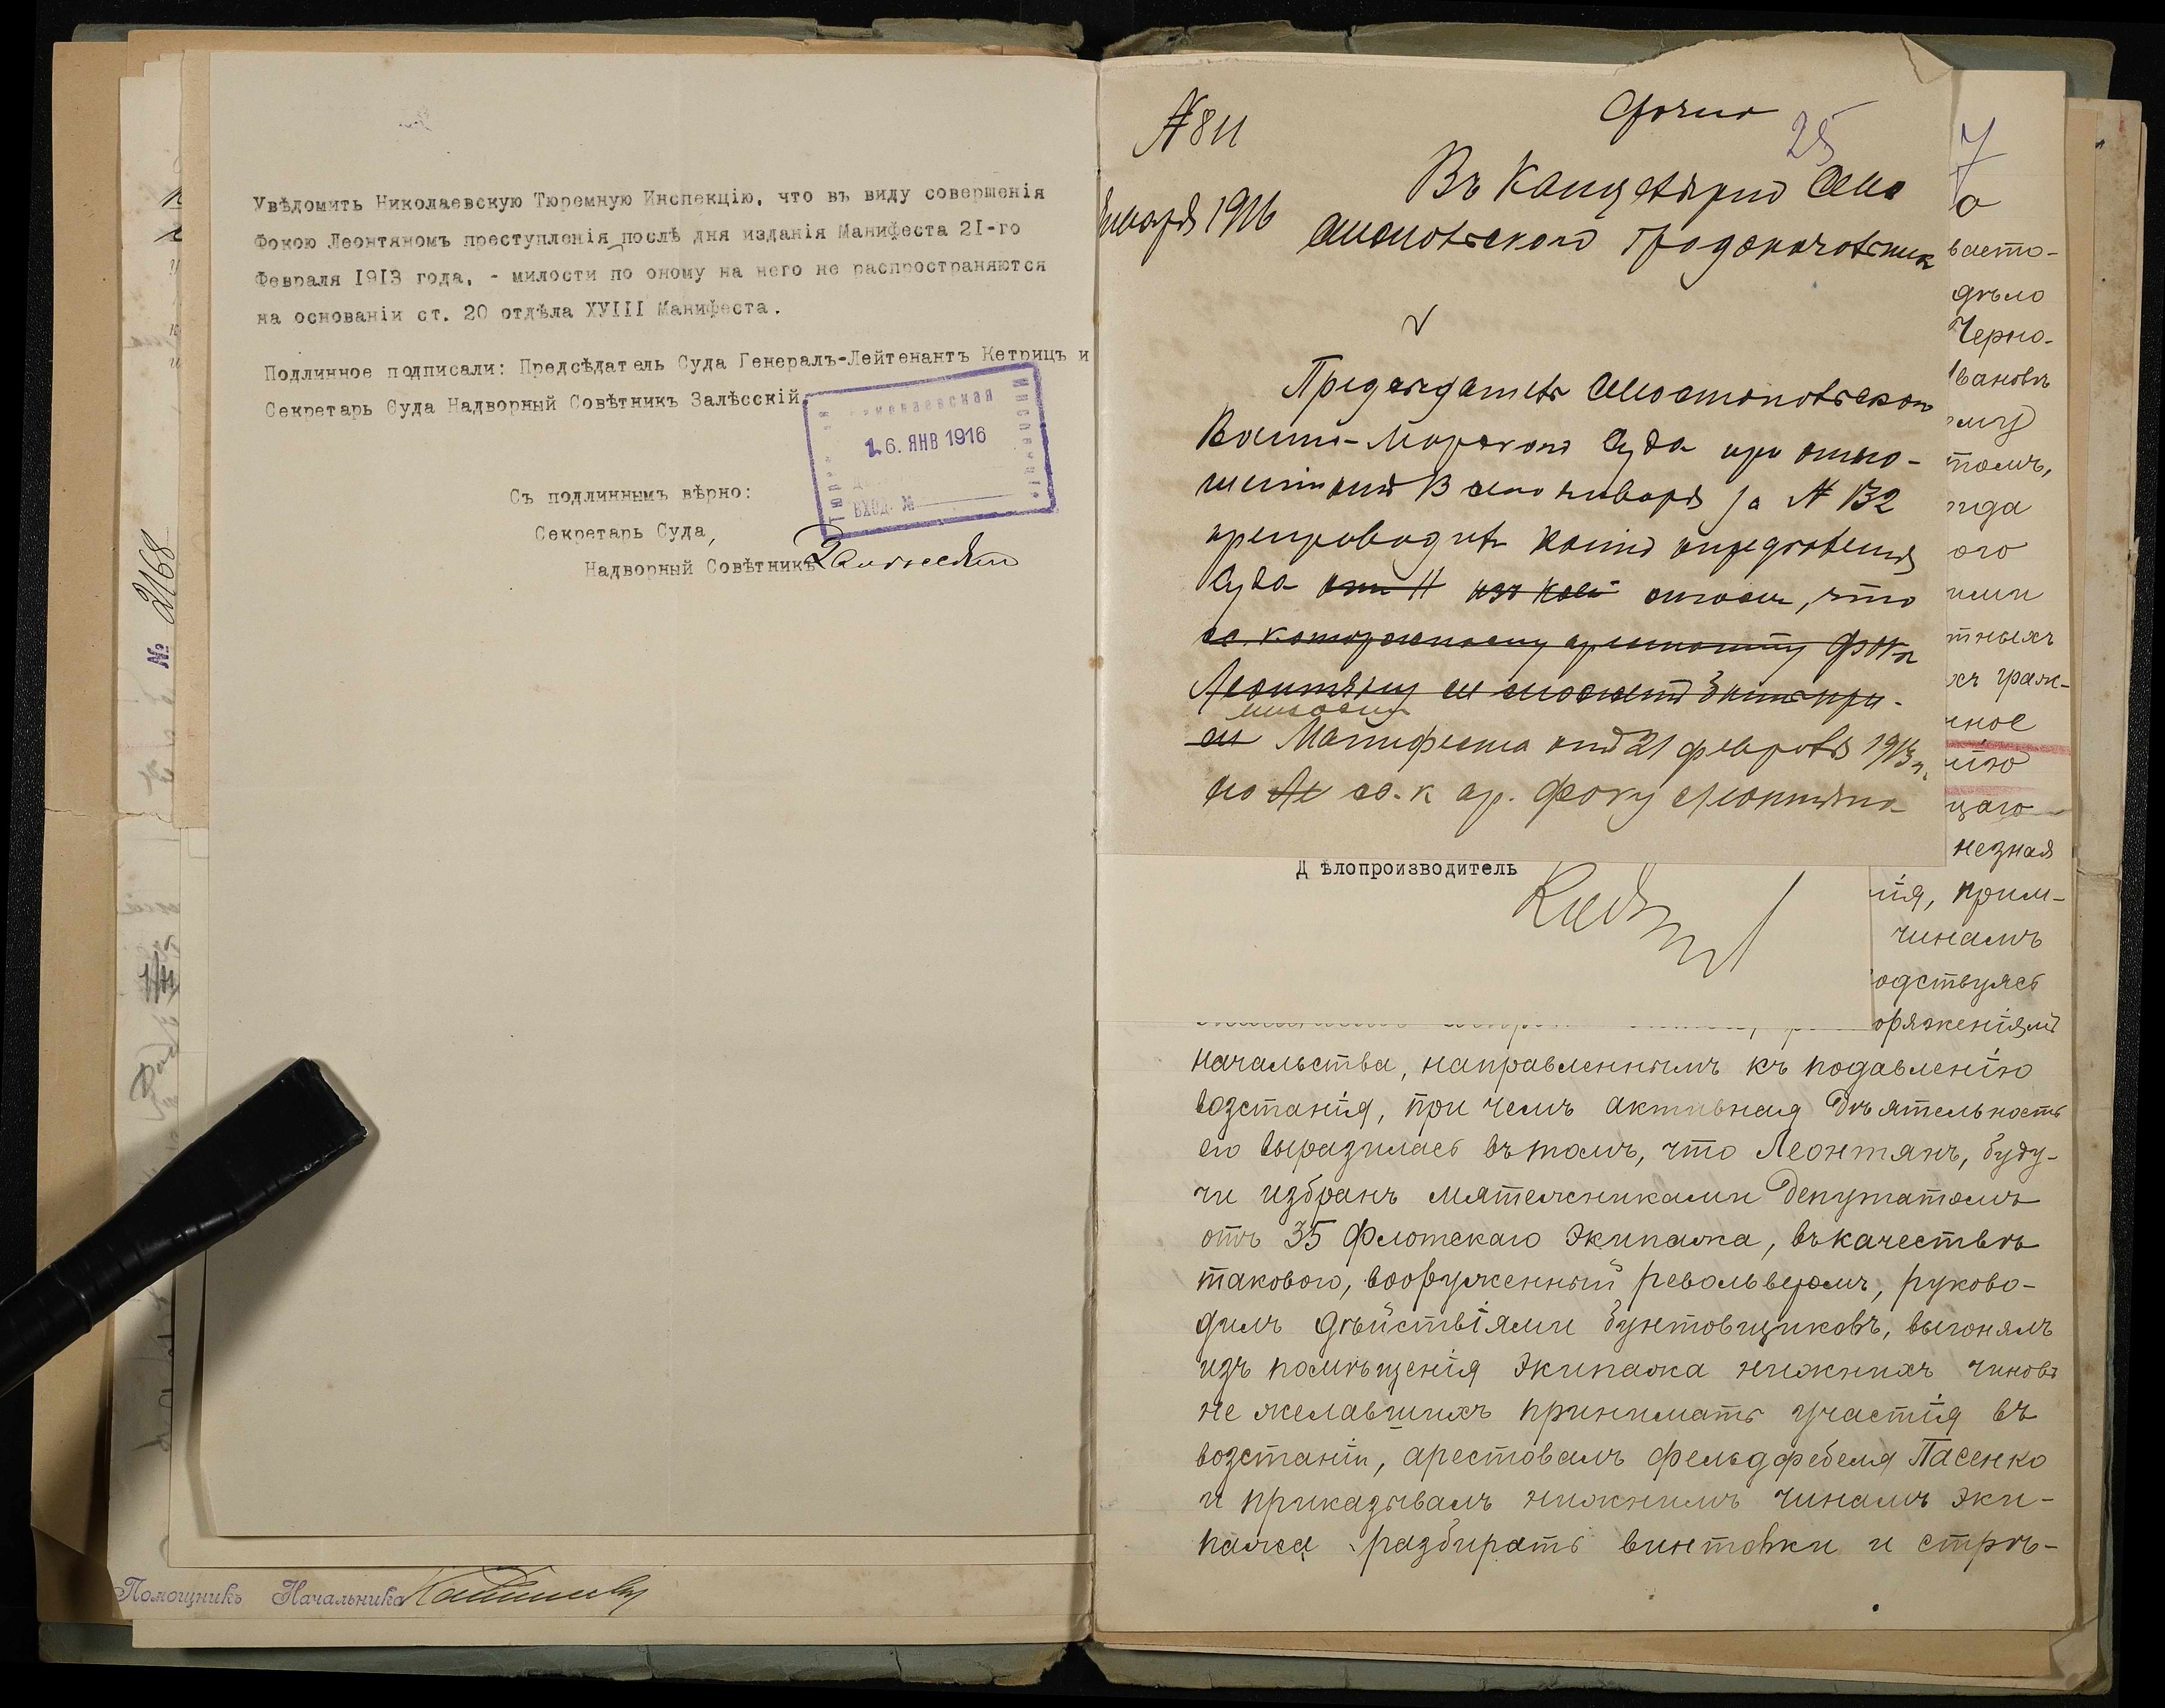 Увѣдомить Николаевскую Тюремную Инспекцію, что въ виду совершенія
Фокою Леонтяномъ преступленія послѣ дня изданія Манифеста 21-го
Февраля 1913 года, - милости по оному на него не распространяются
на основаніи ст. 20 отдѣла ХУІІІ Манифеста.
Подлинное подписали: Предсѣдатель Суда Генералъ-Лейтенантъ Кетрицъ и
Секретарь Суда Надворный Совѣтникъ Залѣсскій.
16. ЯНВ 1916
ВХОД. №
Съ подлиннымъ вѣрно:
Секретарь Суда,
Надворный Совѣтникъ
№ 2168
Помощникъ Начальника
№ 811
Срочно
25
Въ Канцелярію Сева
стопольскаго Градоначальник
Января 1916
Предсѣдатель Севастопольскаго
Военно-Морского Суда при отно-
шеніи отъ 13 сего января за № 132
препроводилъ копію опредѣленія
Суда о томъ, что
милости
Манифеста отъ 21 февраля 1913 г.
на сс.-к ар. Фоку Леонтяна
Дѣлопроизводитель
7
васто-
дѣло
Черно-
томъ,
ого
ими
тныхъ
хъ граж-
ное
щаго
незная
ія, прим-
чинамъ
одствуясь
оряженіями
начальства, направленнымъ къ подавленію
возстанія, при чемъ активная дѣятельность
его выразилась въ томъ, что Леонтянъ, буду-
чи избранъ мятежниками депутатомъ
отъ 35 Флотскаго Экипажа, въ качествѣ
такового, вооруженный револьверомъ, руково-
дилъ дѣйствіями бунтовщиковъ, выгонялъ
изъ помѣщенія Экипажа нижнихъ чиновъ
не желавшихъ принимать участія въ
возстаніи, арестовалъ фельдфебеля Пасенко
и приказывалъ нижнимъ чинамъ Эки-
пажа разбирать винтовки и стрѣ-